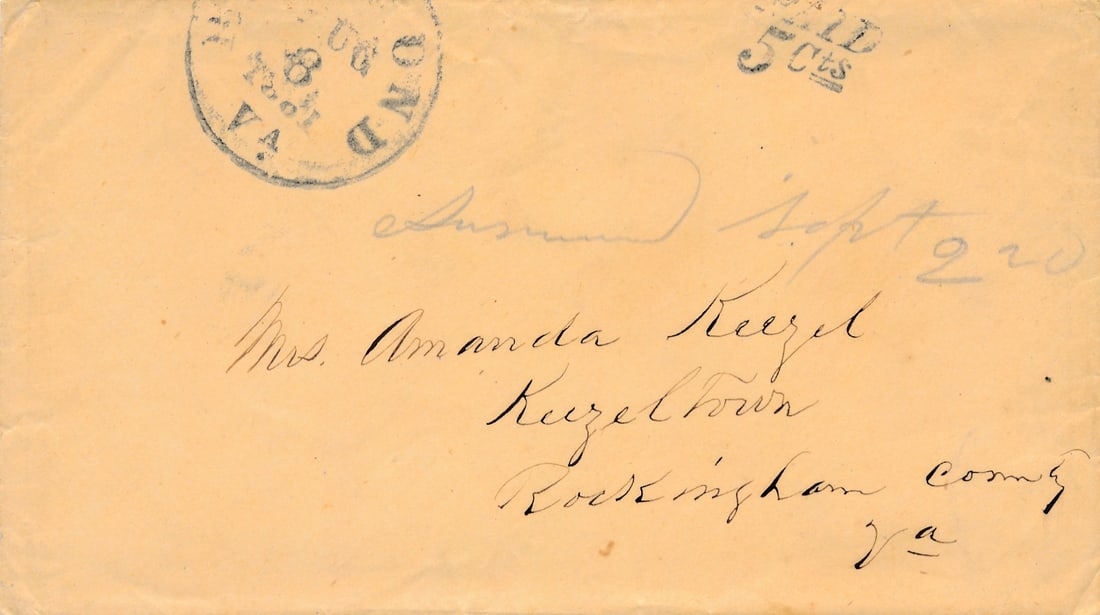 OND
UG
8
1861
VA
PAID
5 Cts
Sept 2nd
Mrs. Amanda Keezel
Keezeltown
Rockingham County
Va